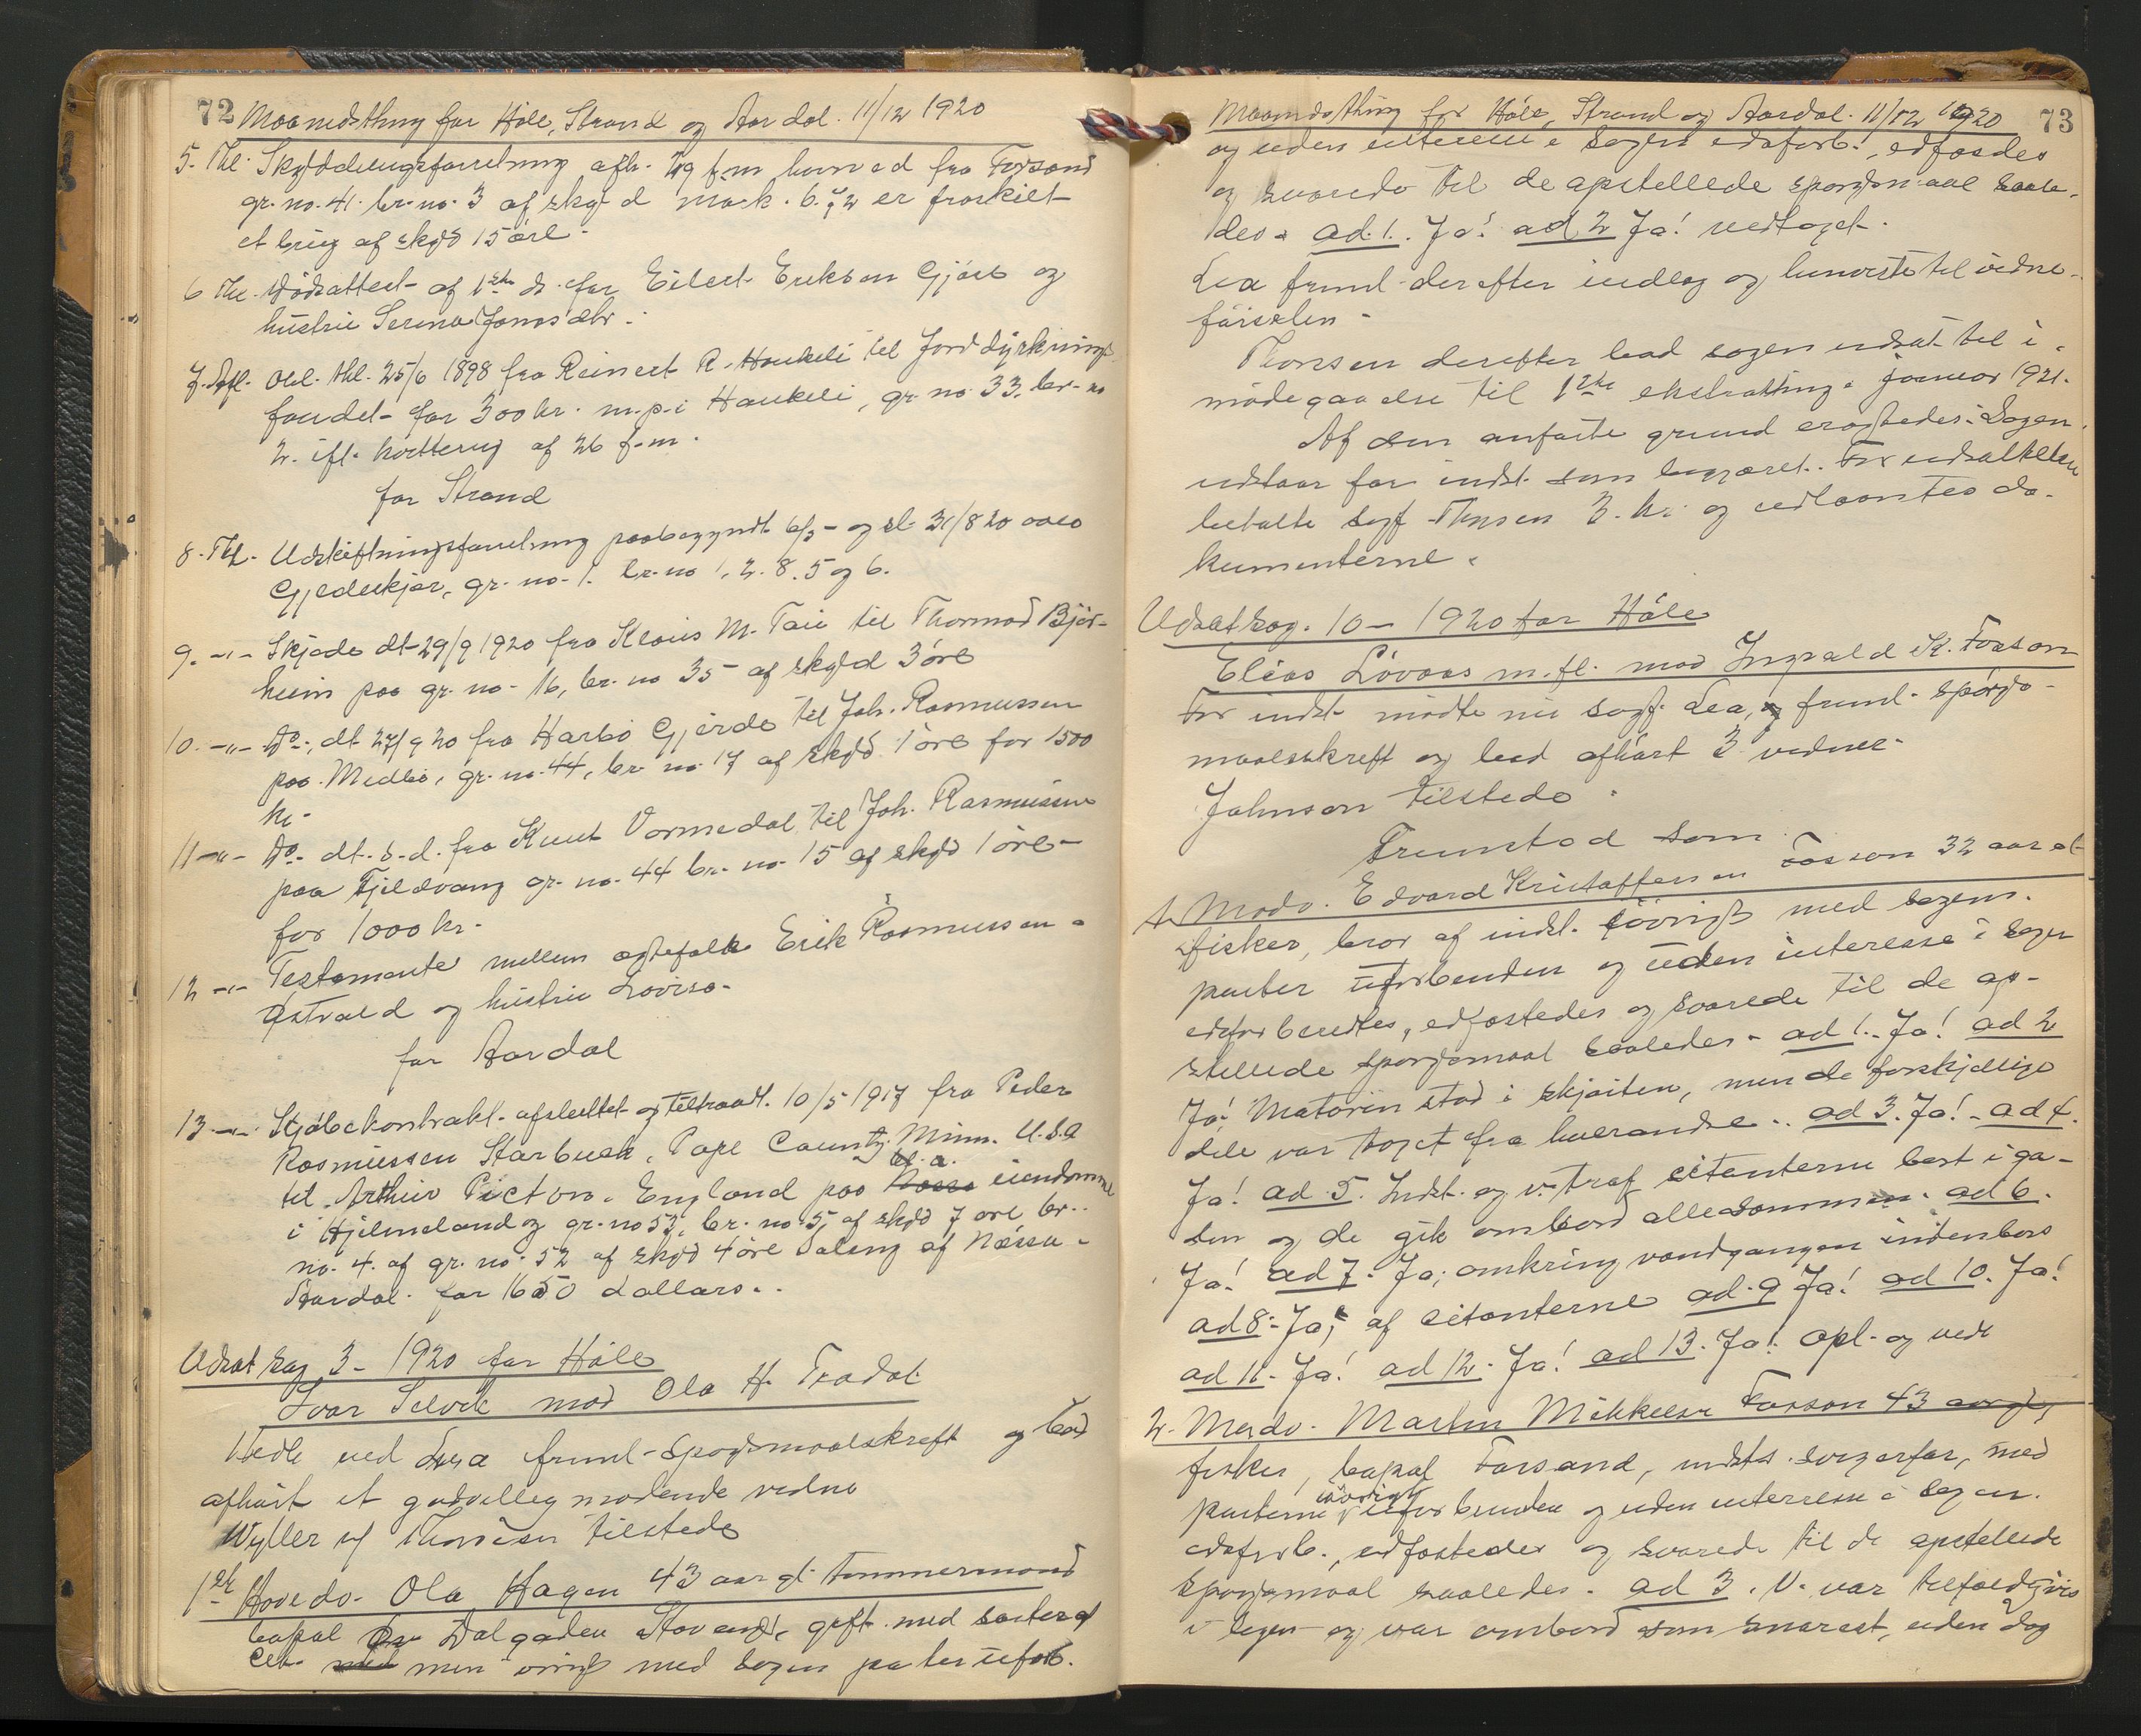 72 Maanedsthing for Høle, Strand og Aardal. 11/12 1920
5. Thl. Skylddelingsforretning afh. 29 f.m. hvorved fra Forsand
gr. no. 41. br. no. 3 af skyld mark. 6.72 er fraskilt
et brug af skyld 15 øre.
6 Thl. Dødsattest af 1ste ds. for Eilert Eriksen Gjøse og
hustru Serina Jonasdtr.
7. Afl. Obl. thl. 25/6 1898 fra Reinert R. Haukeli til Jorddyrknings
fondet for 300 kr. m.p.i Haukeli, gr. no. 33. br. no
2. ifl. kvittering af 26 f.m.
for Strand
8. Thl. Udskiftningsforretning paabegyndt 6/5 og sl. 31/8 20 over
Gjeldeskjær, gr. no. 1. br. no 1, 2. 8. 5 og 6.
9. -"- Skjøde dt 29/9 1920 fra Klaus M. Tau til Thormod Bjør-
heim paa gr. no. 16, br. no 35 af skyld 3 øre
10. -"- Do., dt 27/9 20 fra Harbo Gjerde til Joh. Rasmussen
paa Medbø, gr. no. 44, br. no. 17 af skyld 1 øre for 1500
kr.
11 -"- Do. dt. s.d. fra Knut Vormedal til Joh. Rasmussen
paa Fjeldvang gr. no. 44 br. no. 15 af skyld 1 øre
for 1000 kr.
12 -"- Testamente mellem ægtefolk Erik Rasmussen
Østvold og hustru Lovise.
for Aardal
13 -"- Kjøbekontrakt afsluttet og tiltraadt. 10/5 1917 fra Peder
Rasmussen Starbuck, Pope County. Minn. U.S.A
bl. a.
til Arthur Picton. England paa eiendomme
i Hjelmeland og gr. no 53, br. no. 5, af skyld 7 øre br.
no. 4. af gr. no. 52 af skyld 4 øre Daleng af Næssa i
Aardal for 1650 dollars.
Udsat sag 3 - 1920 for Høle
Ivar Selvik mod Ola H. Fradal.
Vedk ved Lea freml. Spørgsmaalskrift og bad
afhørt et godvillig mødende vidne
Wyller v/ Thorsen tilstede
1ste Hovedv. Ola Hagen 43 aar gl. tømmermand
bopæl Dalgaden Stavanger, gift med søster af
Cit. men øvrigt med sagens parter uforb.
73
Maanedsthing for Høle, Strand og Aardal. 11/12 1920
og uden interesse i sagen edsforb., edfæstedes
og svarede til de opstillede spørgsmaal saale-
des. ad. 1. Ja! ad 2 Ja! vedtaget.
Lea freml. derefter indlæg og henviste til vidne-
førselen.
Thorsen derefter bad sagen udsat til i-
mødegaaelse til 1ste ekstrathing i januar 1921.
Af den anførte grund eragtedes: Sagen
udstaar for indst. som begjæret. For udsættelsen
betalte sagf. Thorsen 3. kr. og udlaantes do-
kumenterne.
Udsat sag. 10 - 1920 for Høle
Elias Løvaas m.fl. mod Ingvald K. Fossan
For indst. mødte nu sagf. Lea, freml. spørgs-
maalsskrift og bad afhørt 3 vidner.
Johnson tilstede.
Fremstod som
1. Modv. Edvard Kristoffersen Fossan 32 aar gl
fisker, bror af indst. iøvrigt med sagens
parter uforbunden og uden interesse i sagen
edsforberedtes, edfæstedes og svarede til de op-
stillede spørgsmaal saaledes. ad 1. Ja! ad 2
Ja! Motoren stod i skjøiten, men de forskjellige
dele var taget fra hverandre. ad 3. Ja! ad 4.
Ja! ad. 5. Indst. og v. traf citanterne bort i ga-
den og de gik ombord allesammen. ad 6.
Ja! ad 7. Ja; omkring vandgangen indenbors
ad 8. Ja; af citanterne ad. 9 Ja! ad 10. Ja!
ad 11. Ja! ad 12. Ja! ad 13. Ja! Opl. og vedt
2. Modv. Martin Mikkelsen Fossan 43 aar gl.
fisker, bopæl Forsand, indsts. svigerfar, med
iøvrigt
parterne uforbunden og uden interesse i sagen.
edsforb., edfæstedes og svarede til de opstillede
spørgsmaal saaledes. ad 3. V. var tilfældigvis
i byen og var ombord som snarest, uden dog